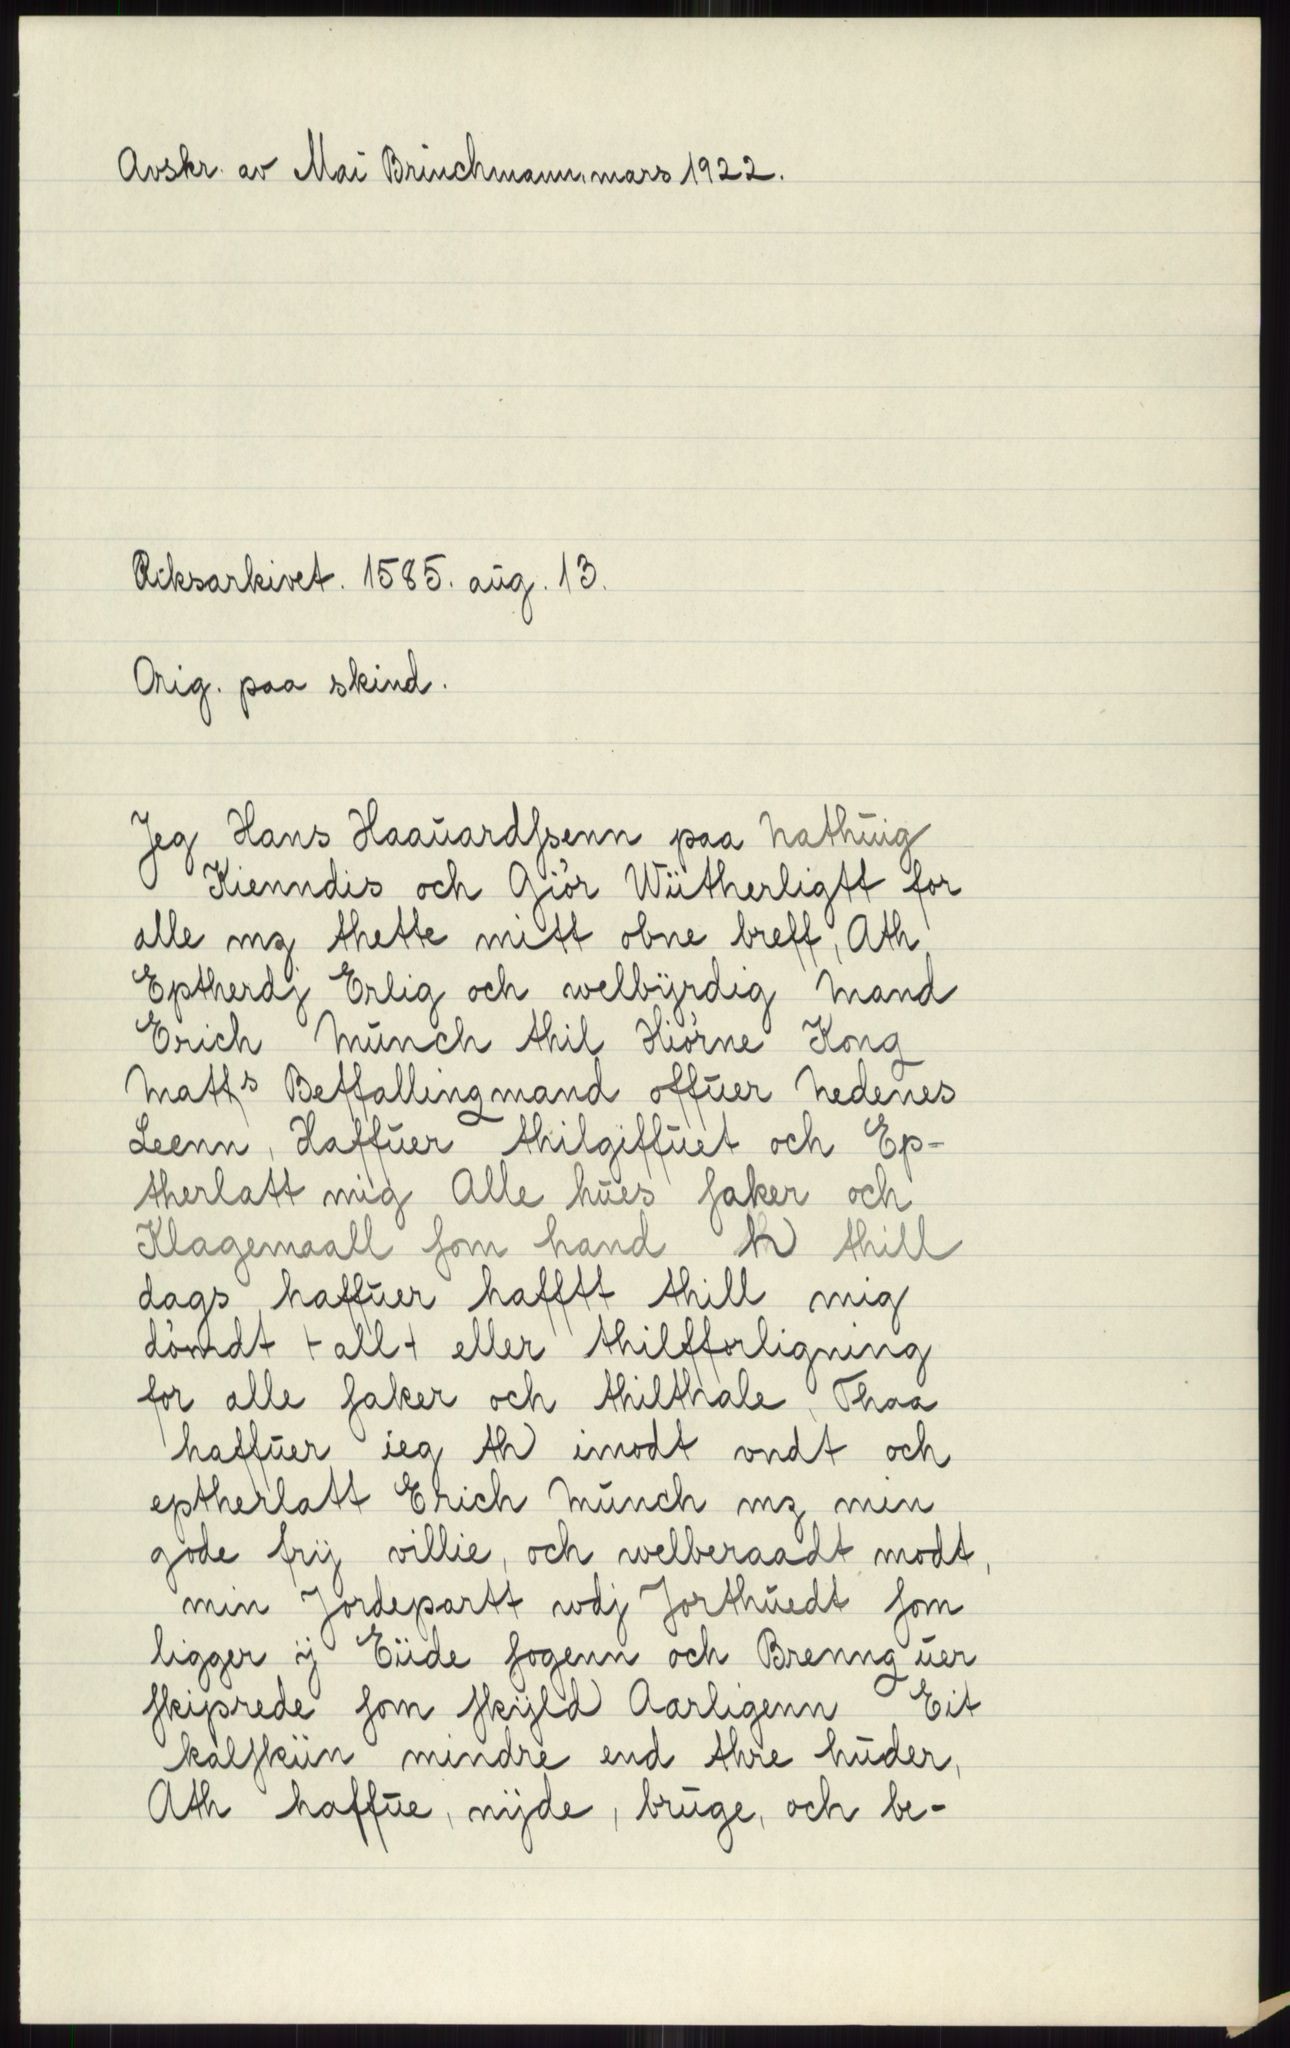 Avskr. av Mai Brinchmann, mars 1922.
Riksarkivet. 1585. aug. 13.
Orig. paa skind.
Jeg Hans Haauardſsenn paa Nathuig
Kienndis och Giör Wütherligtt for
alle mꝫ thette mitt obne breff, Ath
Eptherdj Erlig och welbÿrdig Mand
Erich Munch thil Hiörne Kong
Matts Beffallingmand offuer Nedenes
Leenn, Haffuer thilgiffuet och Ep-
therlatt mig Alle hues ſaker och
Klagemaall ſom hand thill
dags haffuer hafftt thill mig
dömdt + all + eller thilfforligning
for alle ſaker och thilthale, Thaa
haffuer ieg th imodt vndt och
eptherlatt Erich Munch mꝫ min
gode frÿ villie, och welberaadt modt,
min Jordepartt wdj Jorthuedt ſom
ligger ÿ Eüde ſogenn och Brennguer
ſkiprede ſom ſkÿld Aarligenn Eit
kalſkün mindre end thre huder,
Ath haffue, nÿde, bruge, och be-